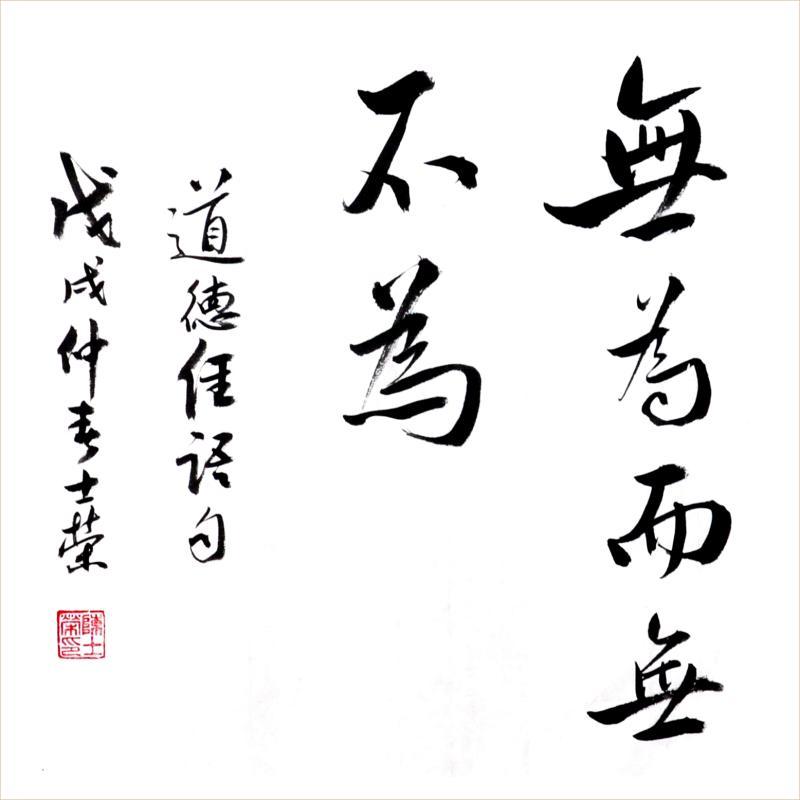 無為而無
不為
道德經語句
戊戌仲春士榮
陳士
榮印